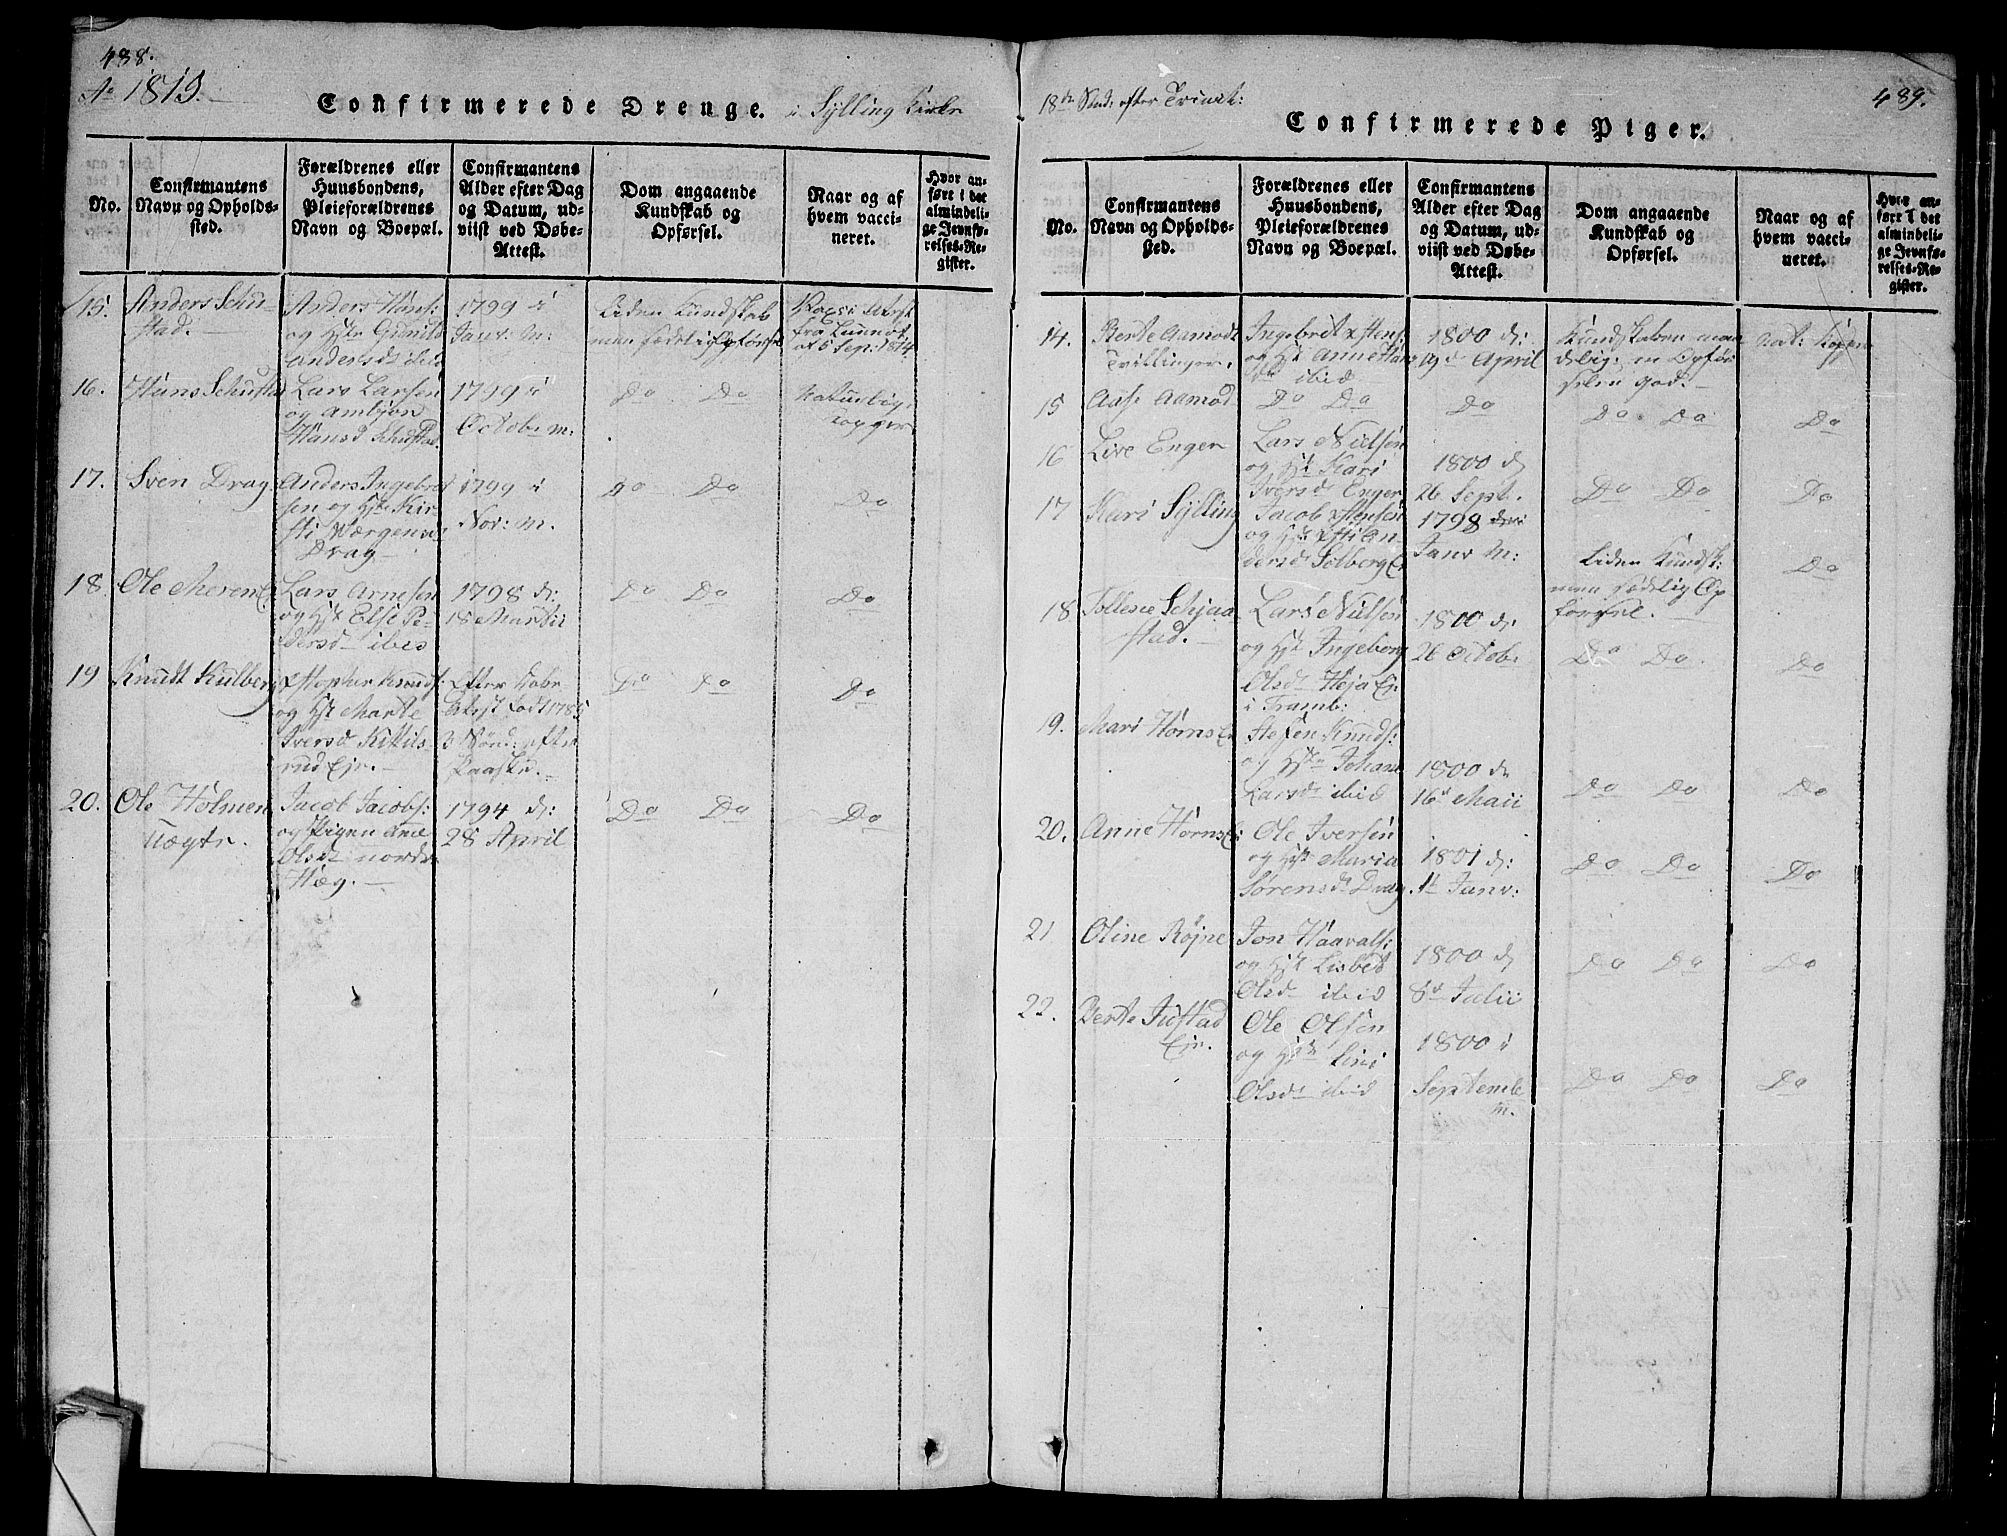 488.
Ao 1819.
Confirmerede Drenge. i Sylling Kirke
No.
Confirmantens Navn og Opholds-sted.
Forældrenes eller Huusbondens, Pleieforældrenes Navn og Boepæl.
Confirmantens Alder efter Dag og Datum, ud-viist ved Døbe-Attest.
Dom angaaende Kundskab og Opførsel.
Naar og af hvem vacci-neret.
Hvor an-ført i det almindeli-ge Jevnfø-relses-Re-gister.
15. Anders Schu-
stad.
Anders Hans:
og Hstr Gunild
Andersdr ibid
1799 i
Janv: M:
Liden Kundskab
men sædelig Opførsel
fra Lunnof
at 6 Sep: 1814
16. Hans Schustad
Lars Larsen
og Ambjør
Hansd Schustad
1799 i
Octob: m:
Do Do
Naturlig
Kopper
17. Sven Drag
Anders Ingebret
sen og Hstr Kir-
sti
Drag
1799 i
Nov: M.
Do Do
Do
18. Ole Meren Ej
Lars Arnesen
og Hstr Else Pe-
dersd ibid
1798 d:
18 Martii
Do Do
Do
19 Knudt Kulberg
Xstopher Knuds:
og Hstr Marte
Iversd Kittils-
rud Ejr.
Efter
født 1785
3 Sønd: efter
Paaske.
Do Do
Do
20. Ole Holmen
Jacob Jacobs:
og Pigen Anne
Olsdr nordr
Hæg.
1794 d:
28 April
Do Do
Do
18de Sönd: efter Trinit:
489.
Confirmerede Piger.
No.
Confirmantens Navn og Opholds-sted.
Forældrenes eller Huusbondens, Pleieforældrenes Navn og Boepæl.
Confirmantens Alder efter Dag og Datum, ud-viist ved Døbe-Attest.
Dom angaaende Kundskab og Opførsel.
Naar og af hvem vacci-neret.
Hvor an-ført i det almindeli-ge Jevnfø-relses-Re-gister.
14. Berte Aamodt
Tvillinger.
Ingebret Xstens:
og Hst Anne Hans
dr ibid
1800 d:
19d April
Kundskaben maa
delig, m Opför
selen god.
Nat: Kopper
15 Aase Aamod
Do Do
Do
Do Do
Do
16 Live Enger
Lars Nielsen
og Hst Kari
Iversd Enger
1800 d
26 Sept.
Do Do
Do
17 Kari Sylling
Jacob Xstensen
og Hst Xsti An-
dersd Solberg Ej
1798
Janv M:
Liden Kundsk:
men sædelig Op
førsel.
Do
18 Tollene Schjaa
stad.
Lars Nielsen
og Hst Ingeborg
Olsd Heja Ej.
i Tranb:
1800 d:
26 Octob:
Do Do
Do
19. Mari Horns Ej
Steffen Knuds:
og Hstr Johane
Larsdr ibid
1800 d
16d Maii
Do Do
Do
20. Anne Horns Ej
Ole Iversen
og Hst Maria
Sörensdr Drag.
1801 d:
11 Janv:
Do Do
Do
21 Oline Röjne
Jon Haavals:
og Hst Lisbet
Olsd ibid
1800 d
8d Julii
Do Do
Do
22. Berte Justad
Ejr.
Ole Olsen
og Hstr Live
Olsd ibid
1800 i
Septemb
m.
Do Do
Do